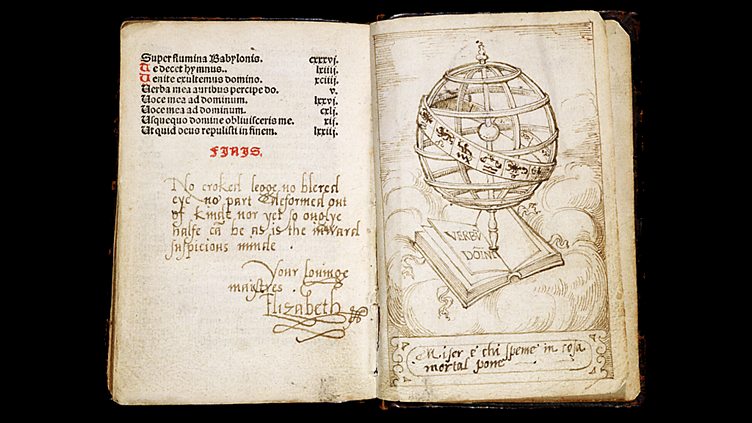 Super flumina Babylonis. cxxxvj.
Te decet hymnus.. lxiiij.
Uenite exultemus domino. xciiij.
Uerba mea auribus percipe do. v.
Uoce mea ad dominum. lxxvj.
Uoce mea ad dominum. cxlj.
Usquequo domine obliuisceris me. xij.
Ut quid deus repulisti in finem. lxxiij.
FINIS.
No croked legge no blered
eye no part deformed out
of kinde nor yet so ouglye
halfe cā be as is the inward
suspicious minde .
Your louinge
maistres
Elizabeth
VERBŪ
DO͞INI
Miser è chi speme in cosa
mortal pone